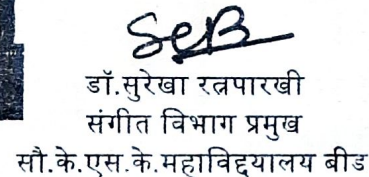 डॉ.सुरेखा रत्नपारखी
संगीत विभाग प्रमुख
सौ.के.एस.के.महाविद्दयालय बीड